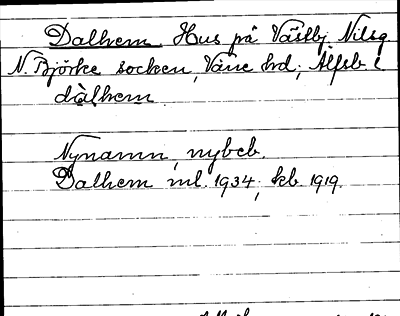 Dalhem. Hus på Västbj. Nilsg.
N. Björke socken, Väne hd; Älfsb. l
dàlhem
Nynamn, nybeb.
Dalhem ml. 1934; kb. 1919.